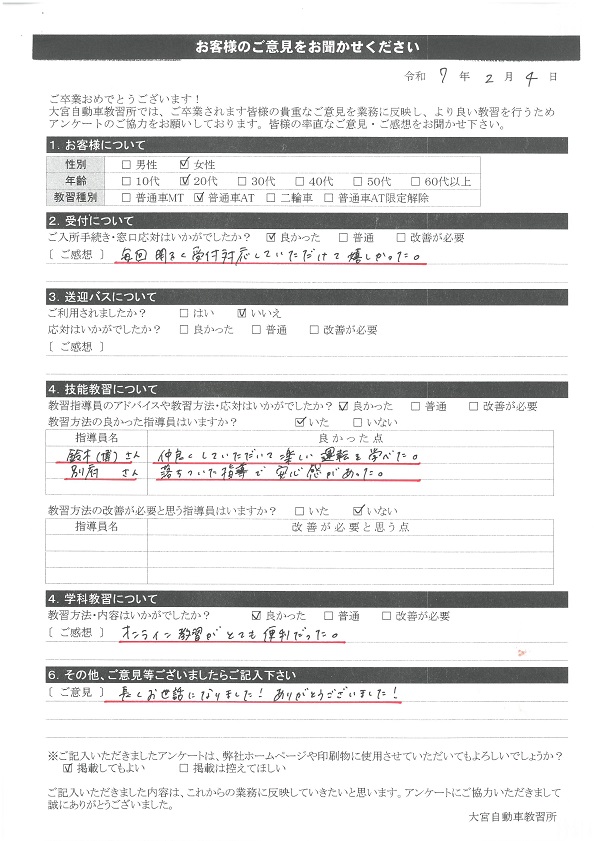 お客様のご意見をお聞かせください
令和 7 年 2 月 4 日
ご卒業おめでとうございます！
大宮自動車教習所では、ご卒業されます皆様の貴重なご意見を業務に反映し、より良い教習を行うため
アンケートのご協力をお願いしております。皆様の率直なご意見・ご感想をお聞かせ下さい。
1. お客様について
性別 □ 男性 ☑ 女性
年齢 □ 10代 ☑ 20代 □ 30代 □ 40代 □ 50代 □ 60代以上
教習種別 □ 普通車MT ☑ 普通車AT □ 二輪車 □ 普通車AT限定解除
2. 受付について
ご入所手続き・窓口応対はいかがでしたか？ ☑ 良かった □ 普通 □ 改善が必要
〔 ご感想 〕 毎回明るく受付対応していただけて嬉しかった。
3. 送迎バスについて
ご利用されましたか？ □ はい ☑ いいえ
応対はいかがでしたか？ □ 良かった □ 普通 □ 改善が必要
〔 ご感想 〕
4. 技能教習について
教習指導員のアドバイスや教習方法・応対はいかがでしたか？ ☑ 良かった □ 普通 □ 改善が必要
教習方法の良かった指導員はいますか？ ☑ いた □ いない
指導員名 良かった点
鈴木(博)さん 仲良くしていただいて楽しい運転を学べた。
別府 さん 落ちついた指導で安心感があった。
教習方法の改善が必要と思う指導員はいますか？ □ いた ☑ いない
指導員名 改善が必要と思う点
4. 学科教習について
教習方法・内容はいかがでしたか？ ☑ 良かった □ 普通 □ 改善が必要
〔 ご感想 〕 オンライン教習がとても便利だった。
6. その他、ご意見等ございましたらご記入下さい
〔 ご意見 〕 長くお世話になりました！ありがとうございました！
※ご記入いただきましたアンケートは、弊社ホームページや印刷物に使用させていただいてもよろしいでしょうか？
☑ 掲載してもよい □ 掲載は控えてほしい
ご記入いただきました内容は、これからの業務に反映していきたいと思います。アンケートにご協力いただきまして
誠にありがとうございました。
大宮自動車教習所